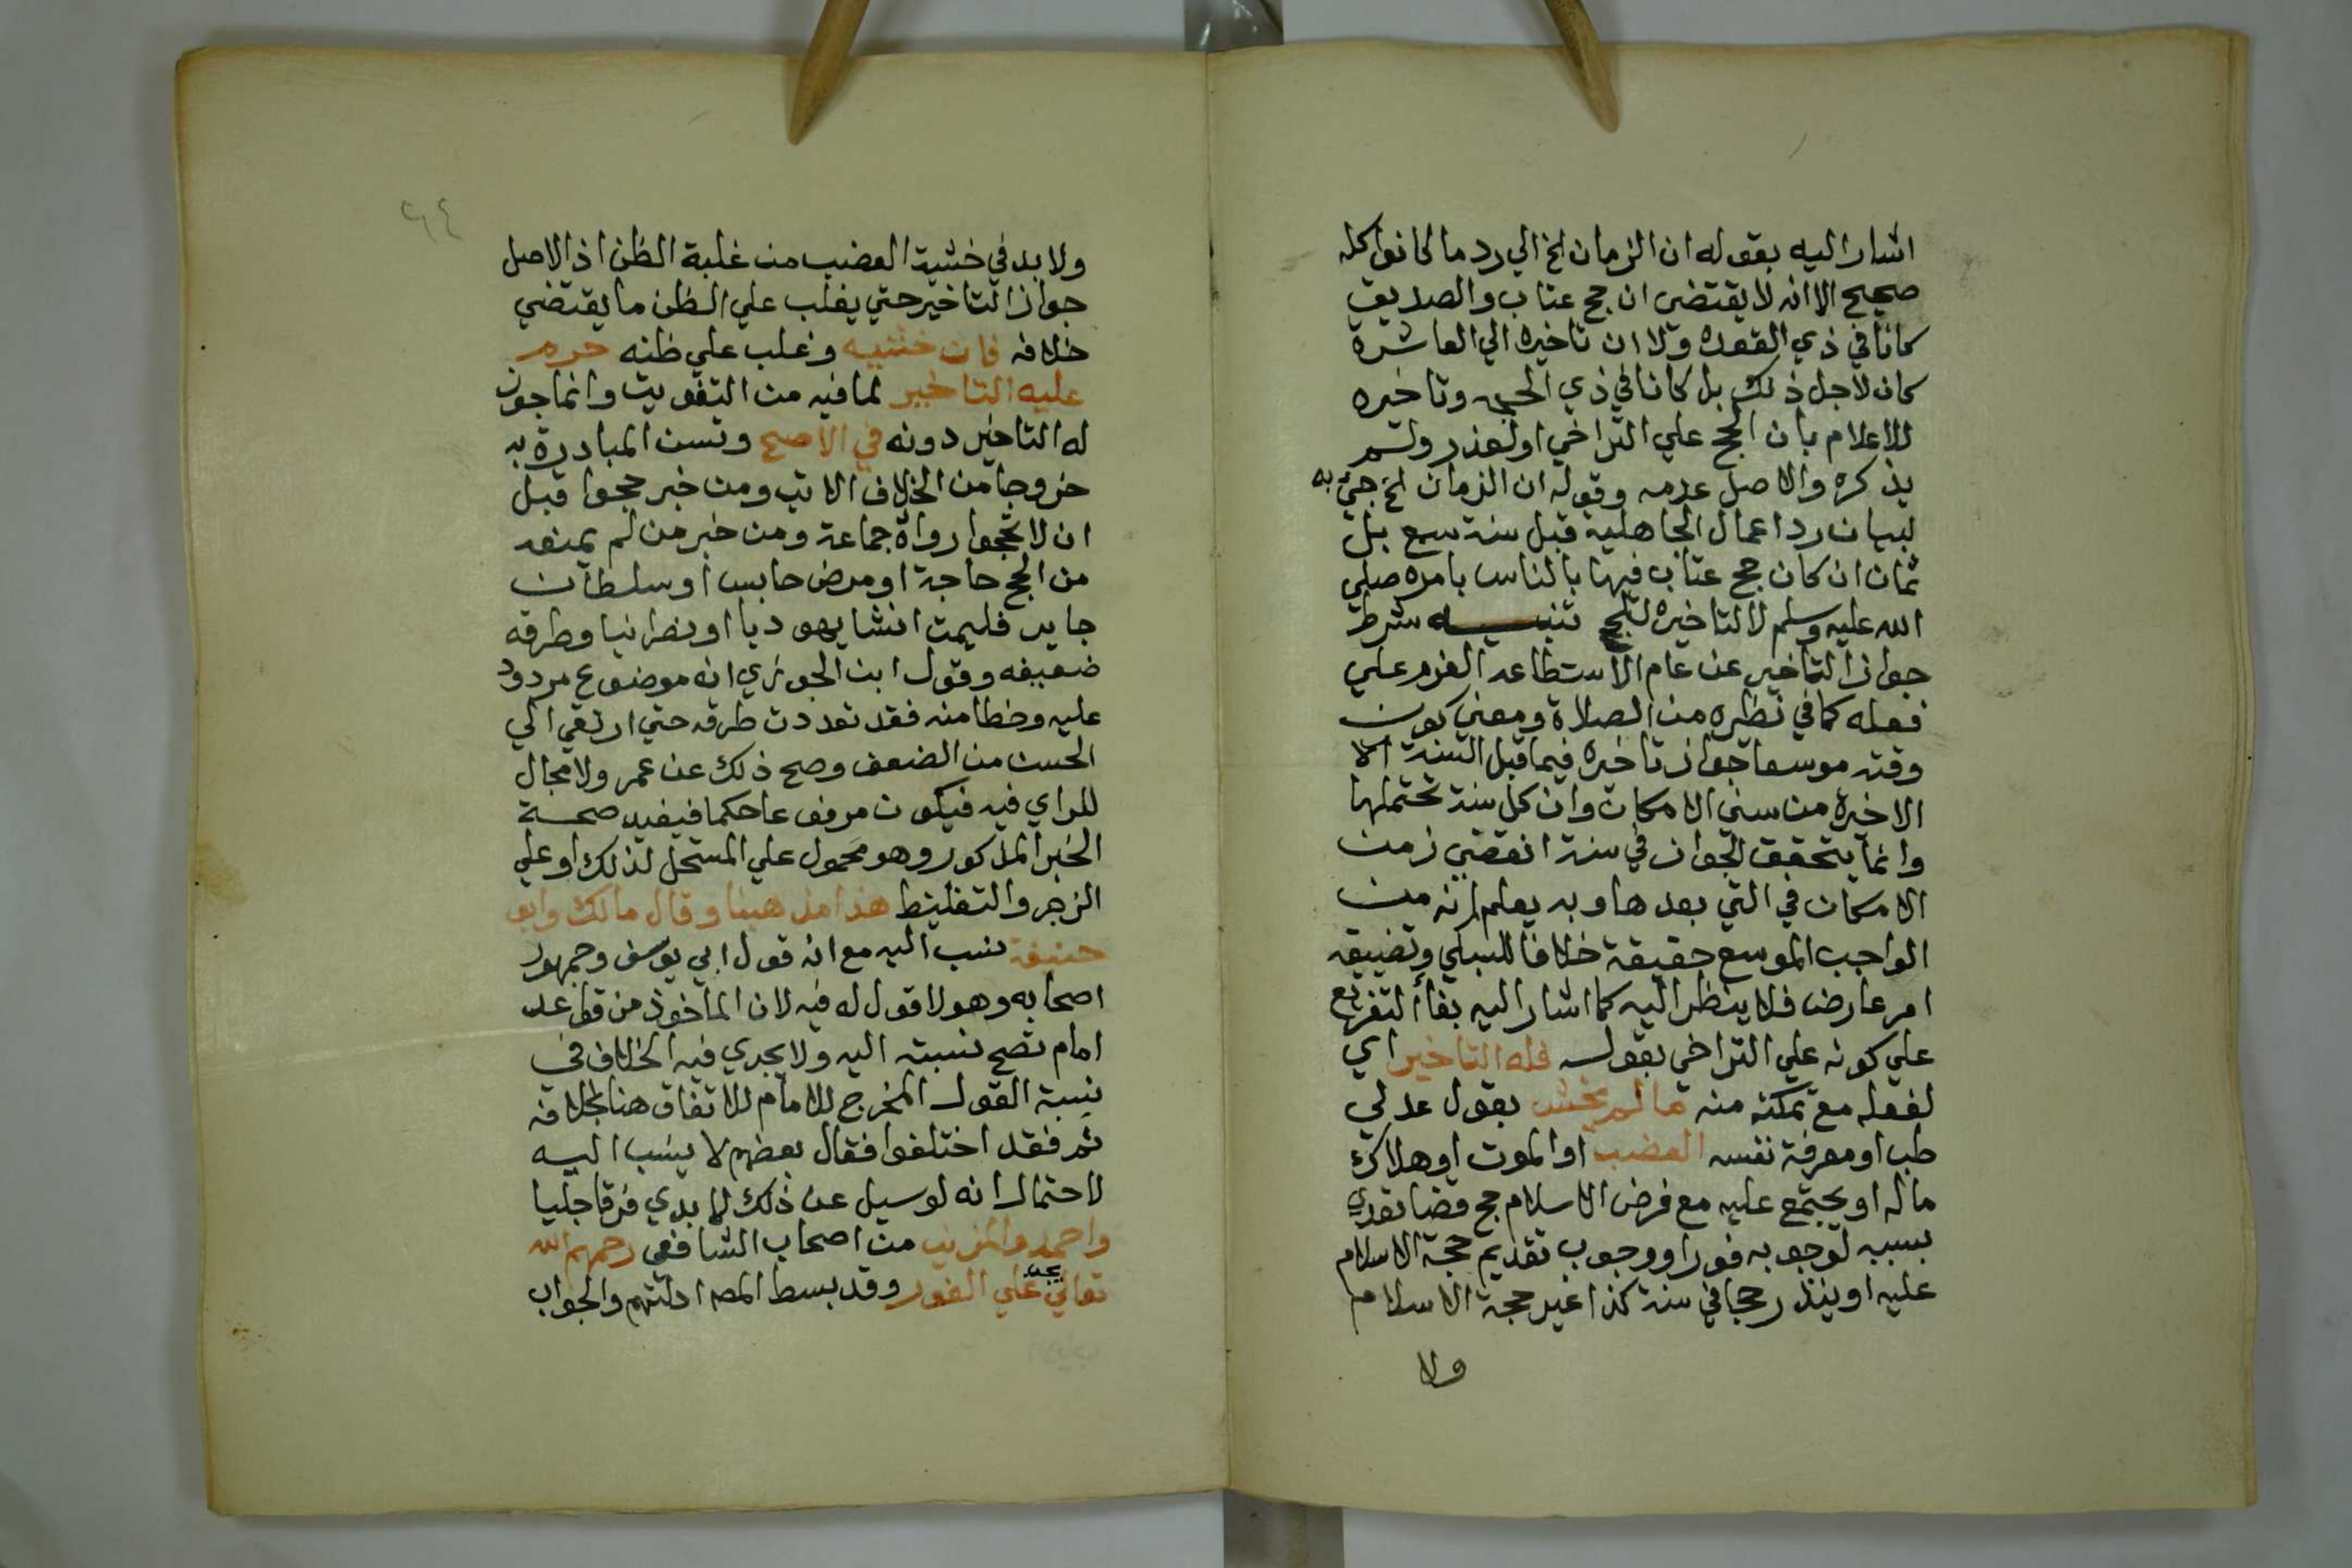 اشار اليه بقوله ان الزمان الخ الي رد ما كانوا كله
صحيح الا انه لا يقتضى ان حج عتاب والصديق
كانا في ذي القعده ولا ان تاخيره الي العاشرة
كان لاجل ذلك بل كانا في ذي الحجه وتاخيره
للاعلام بان الحج علي التراخي او لعذر ولم
يذكره والاصل عدمه وقوله ان الزمان الخ جئ به
لبيان رد اعمال الجاهلية قبل سنة تسع بل
ثمان ان كان حج عتاب فيها بالناس بامره صلي
الله عليه وسلم لا لتاخيره للحج تنبيه شرط
جواز التاخير عن عام الاستطاعه العزم علي
فعله كما في نظيره من الصلاة ومعني كون
وقته موسعا جواز تاخيره فيما قبل السنة الا
الاخيرة من سني الامكان وان كل سنة تحتملها
وانما يتحقق الجواز في سنة انقضي زمن
الامكان في التي بعدها وبه يعلم انه من
الواجب الموسع حقيقة خلافا للسبكي وتضييقه
امر عارض فلا ينظر اليه كما اشار اليه بفاء التفريع
علي كونه علي التراخي بقوله فله التاخير اي
لفعله مع تمكنه منه ما لم يخش بقول عدلي
طب او معرفة نفسه العضب او الموت او هلاك
ماله او يجتمع عليه مع فرض الاسلام حج قضا تعدي
بسببه لوجوبه فورا ووجوب تقديم حجة الاسلام
عليه او ينذر حجا في سنة كذا غير حجة الاسلام
ولا
٦٤
ولا بد في خشية العضب من غلبة الظن اذ الاصل
جواز التاخير حتي يغلب علي الظن ما يقتضي
خلافه فان خشيه وغلب علي ظنه حرم
عليه التاخير لما فيه من التفويت وانما جوز
له التاخير دونه في الاصح وتسن المبادرة به
خروجا من الخلاف الاتي ومن خبر حجوا قبل
ان لا تحجوا رواة جماعة ومن خبر من لم يمنعه
من الحج حاجة او مرض حابس او سلطان
جاير فليمت انشا يهوديا او نصرانيا وطرقه
ضعيفه وقول ابن الجوزي انه موضوع مردود
عليه وخطا منه فقد تعددت طرقه حتي ارتقي الي
الحسن من الضعف وصح ذلك عن عمر ولا مجال
للراي فيه فيكون مرفوعا حكما فيفيد صحة
الخبر المذكور وهو محمول علي المستحل لذلك او علي
الزجر والتغليظ هذا مذهبنا وقال مالك وابو
حنيفة نسب اليه مع انه قول ابي يوسف وجمهور
اصحابه وهو لا قول له فيه لان الماخوذ من قواعد
امام تصح نسبته اليه ولا يجري فيه الخلاف في
نسبة القول المخرج للامام للاتفاق هنا بخلافه
ثم فقد اختلفوا فقال بعضهم لا ينسب اليه
لاحتمال انه لو سيل عن ذلك لابدي فرقا جليا
واحمد والمزني من اصحاب الشافعي رحمهم الله
تعالي يجب علي الفور وقد بسط المص ادلتهم والجواب